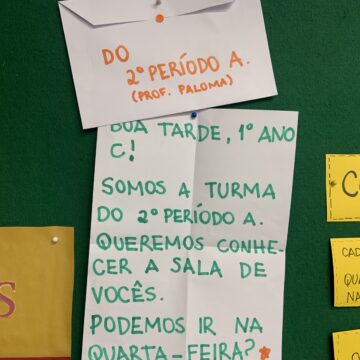 DO
2º PERÍODO A.
(PROF. PALOMA)
BOA TARDE, 1º ANO
C!
SOMOS A TURMA
DO 2º PERÍODO A.
QUEREMOS CONHE-
CER A SALA DE
VOCÊS.
PODEMOS IR NA
QUARTA-FEIRA?
S
C
CAD
QU
NA